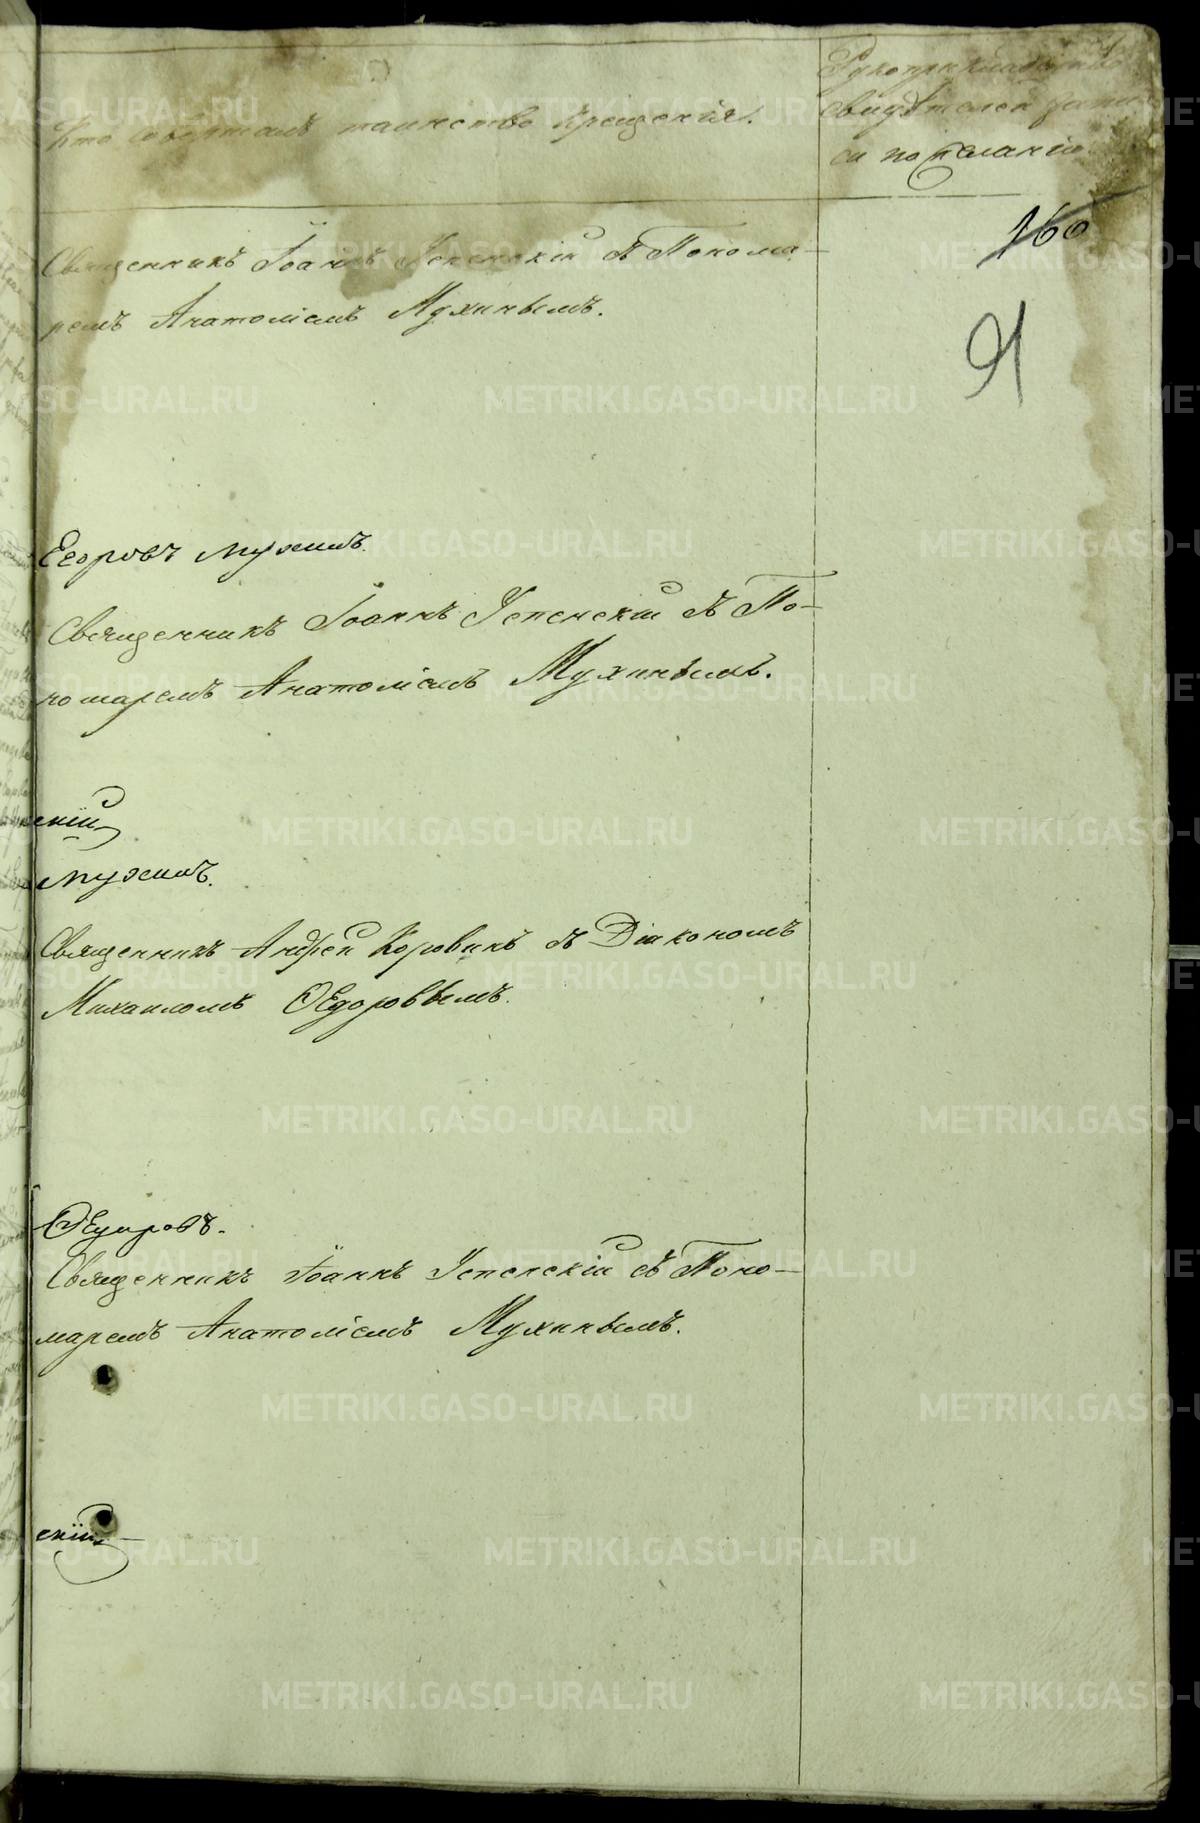 Кто совершалъ таинство крещенія.
Рукоприкладство
свидѣтелей запи
си по желанію
160
91
Священникъ Іоаннъ Успенскій съ Понома-
ремъ Анатоліемъ Мухинымъ.
Егоровъ Мухинъ.
Священникъ Іоаннъ Успенскій съ По-
номаремъ Анатоліемъ Мухинымъ.
скій
Мухинъ.
Священникъ Андрей Коровинъ съ Діакономъ
Михаиломъ Ѳедоровымъ.
Ѳедоровъ.
Священникъ Іоаннъ Успенскій съ Поно-
маремъ Анатоліемъ Мухинымъ.
скій
METRIKI.GASO-URAL.RU